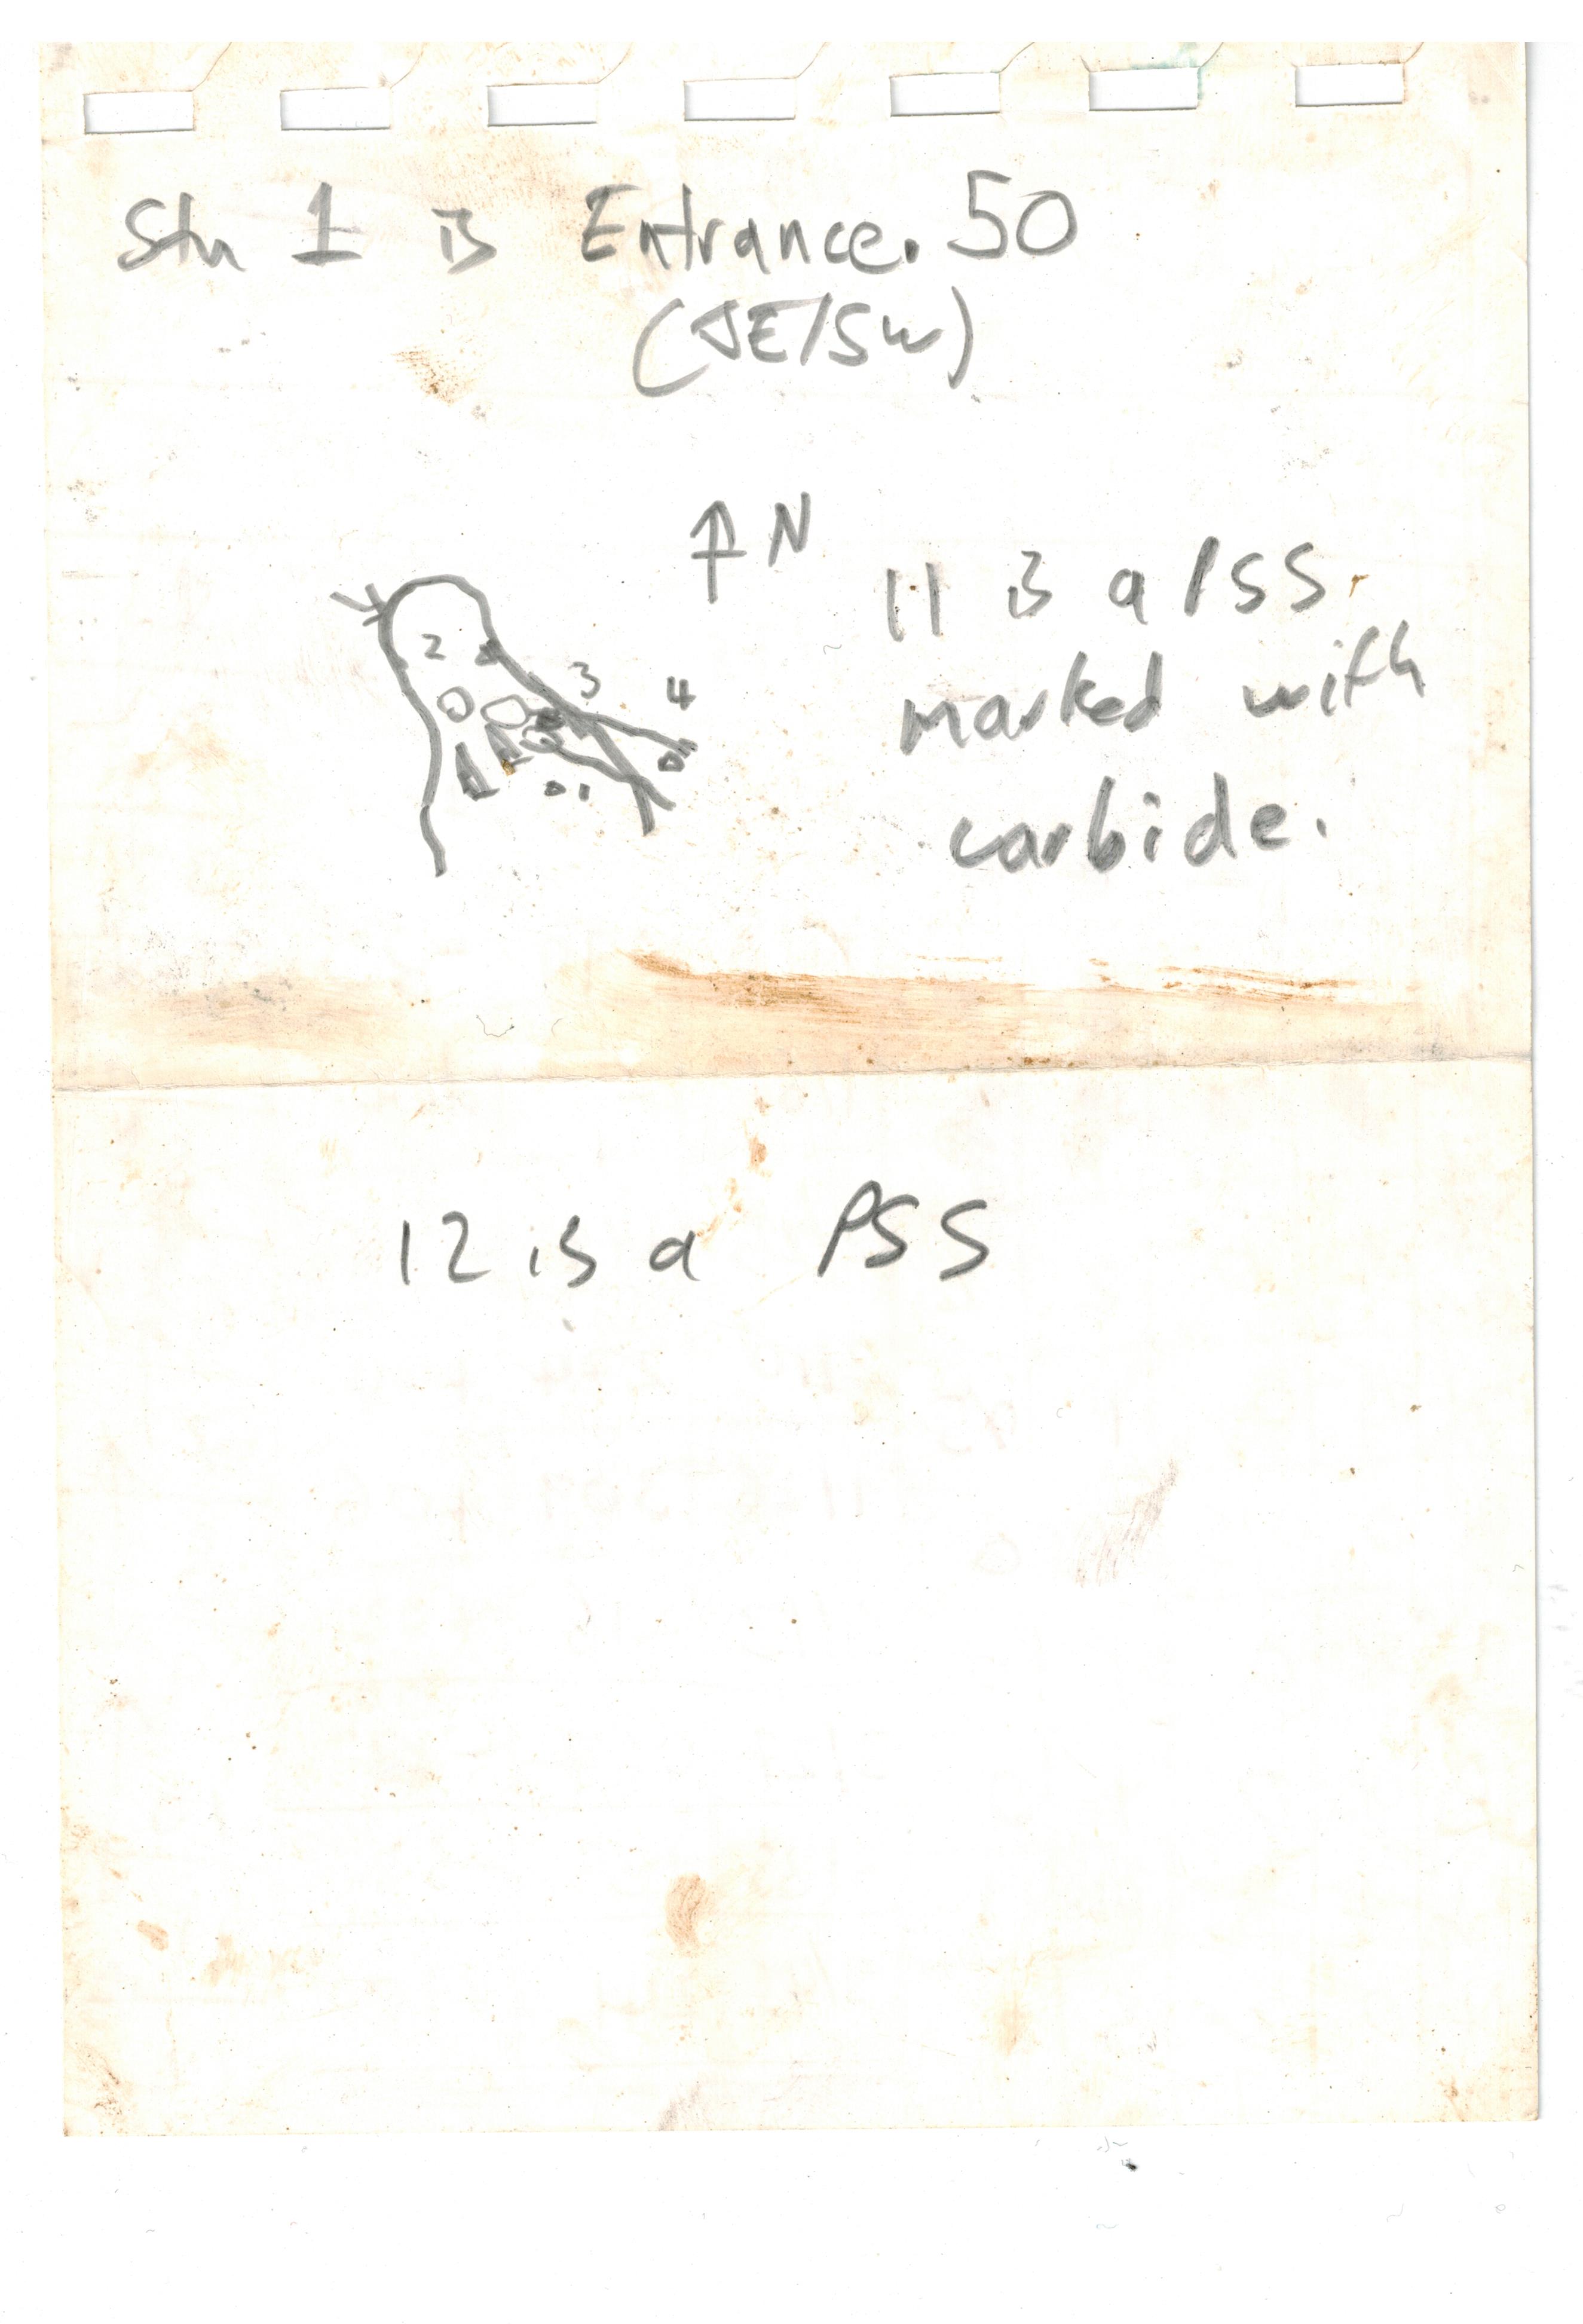 Stn 1 is Entrance. 50
(JE/SW)
↑ N
11 is a PSS
marked with
carbide.
2
3
4
1
12 is a PSS